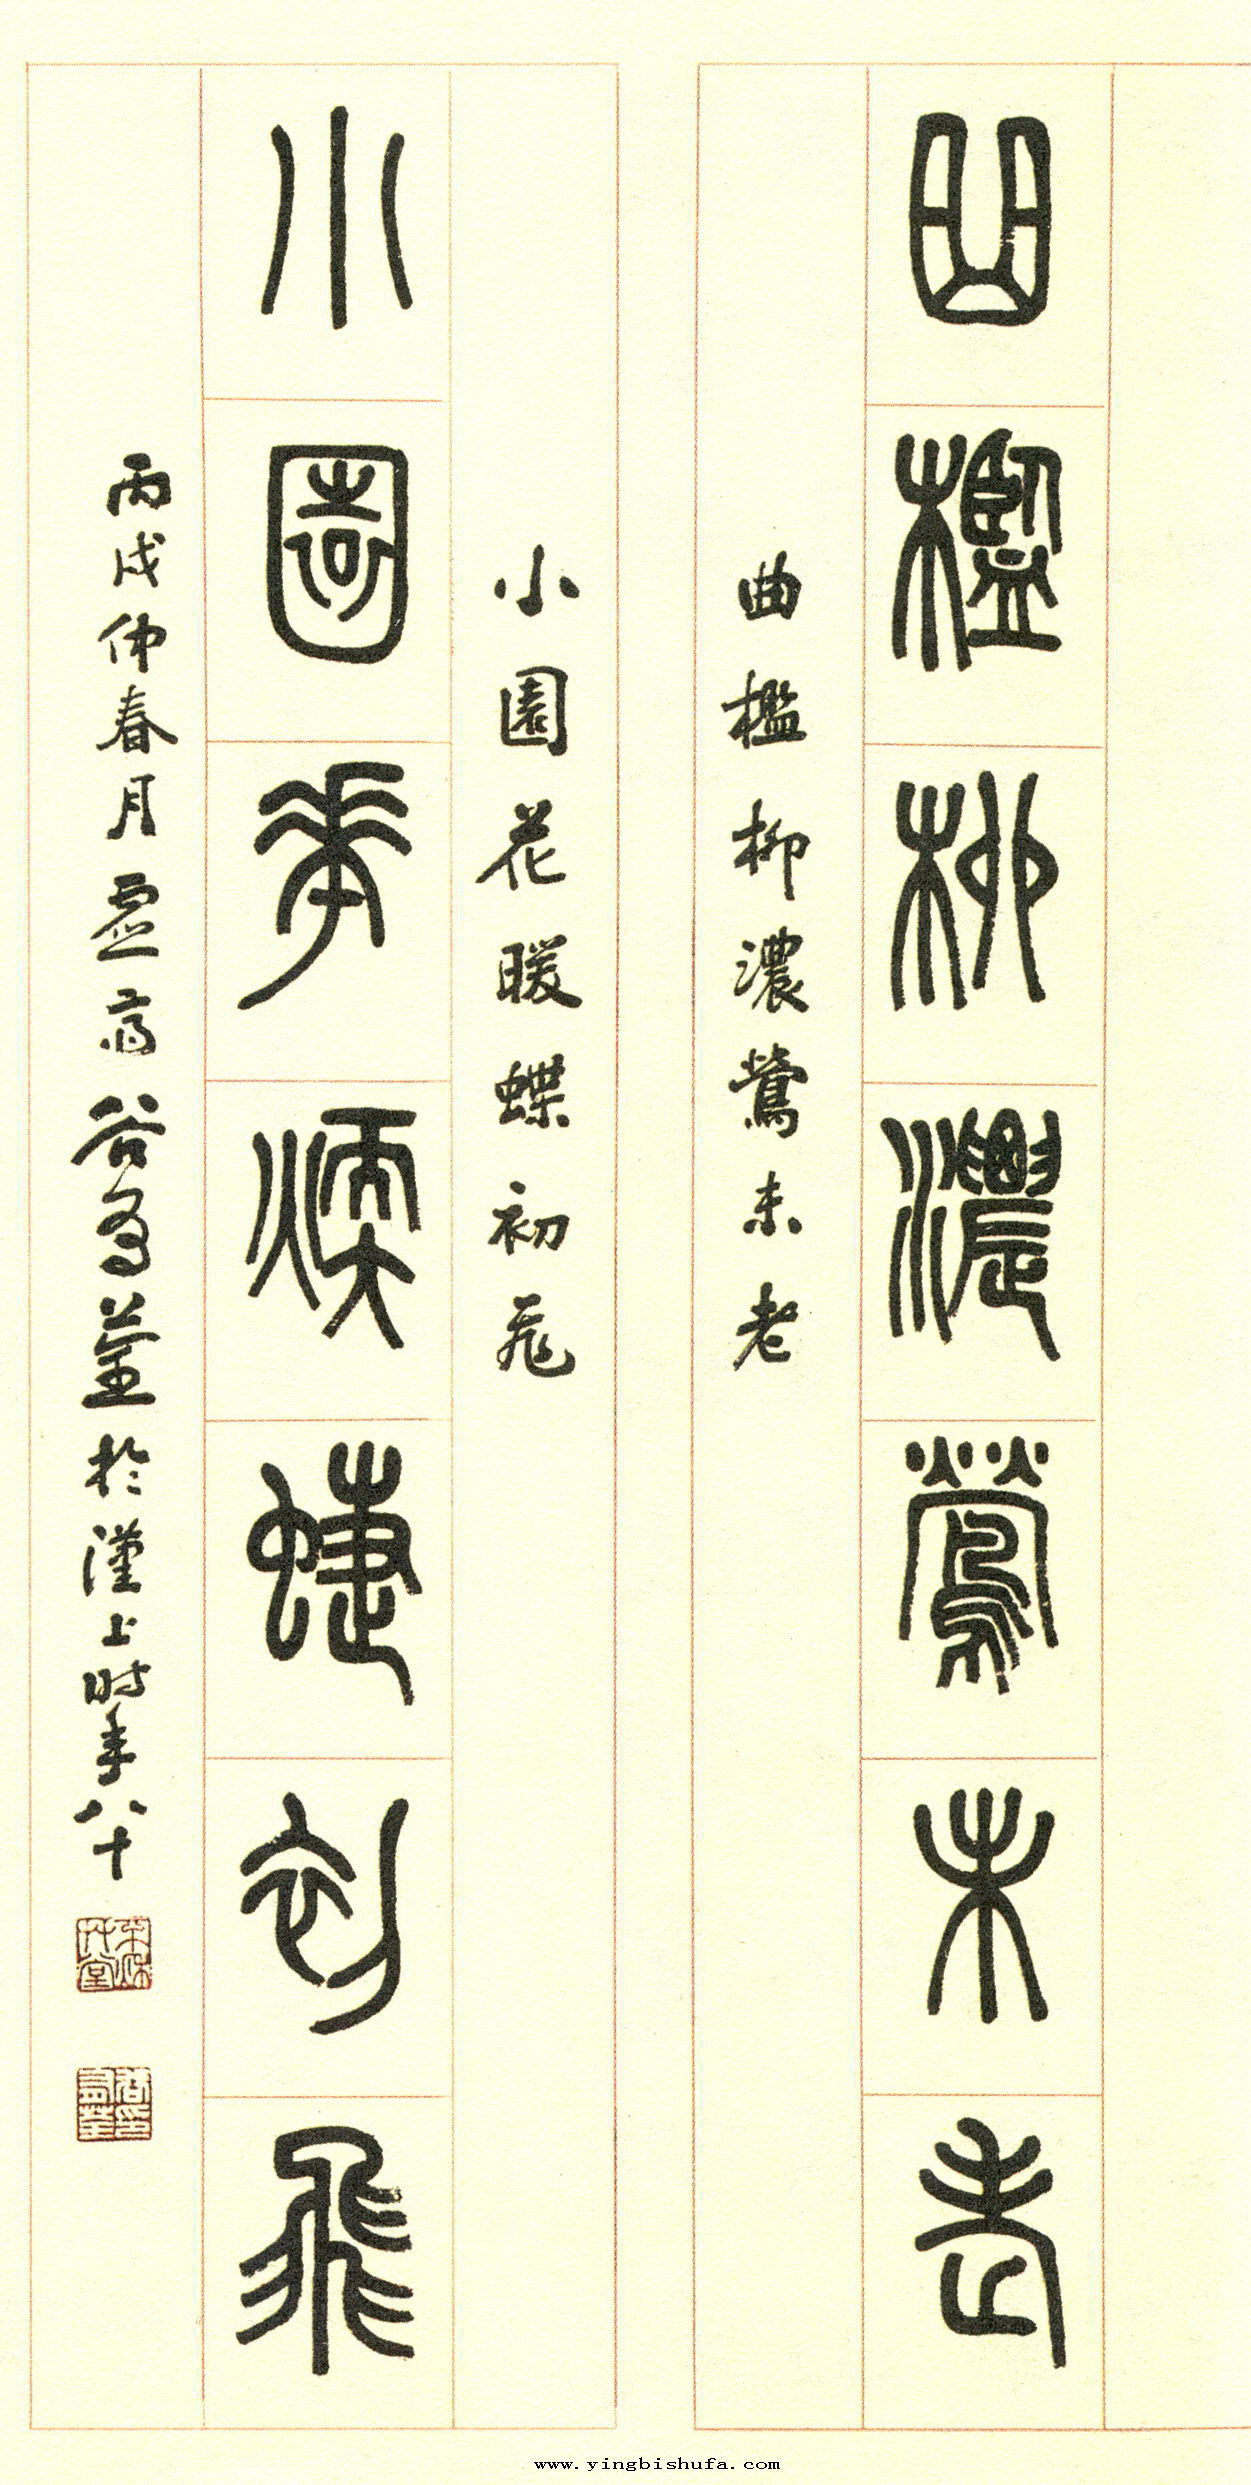 曲檻柳濃鶯未老
曲檻柳濃鶯未老
小園花暖蝶初飛
小園華煗蜨初飛
丙戌仲春月虚斋谷有荃於漢上时年八十
www.yingbishufa.com